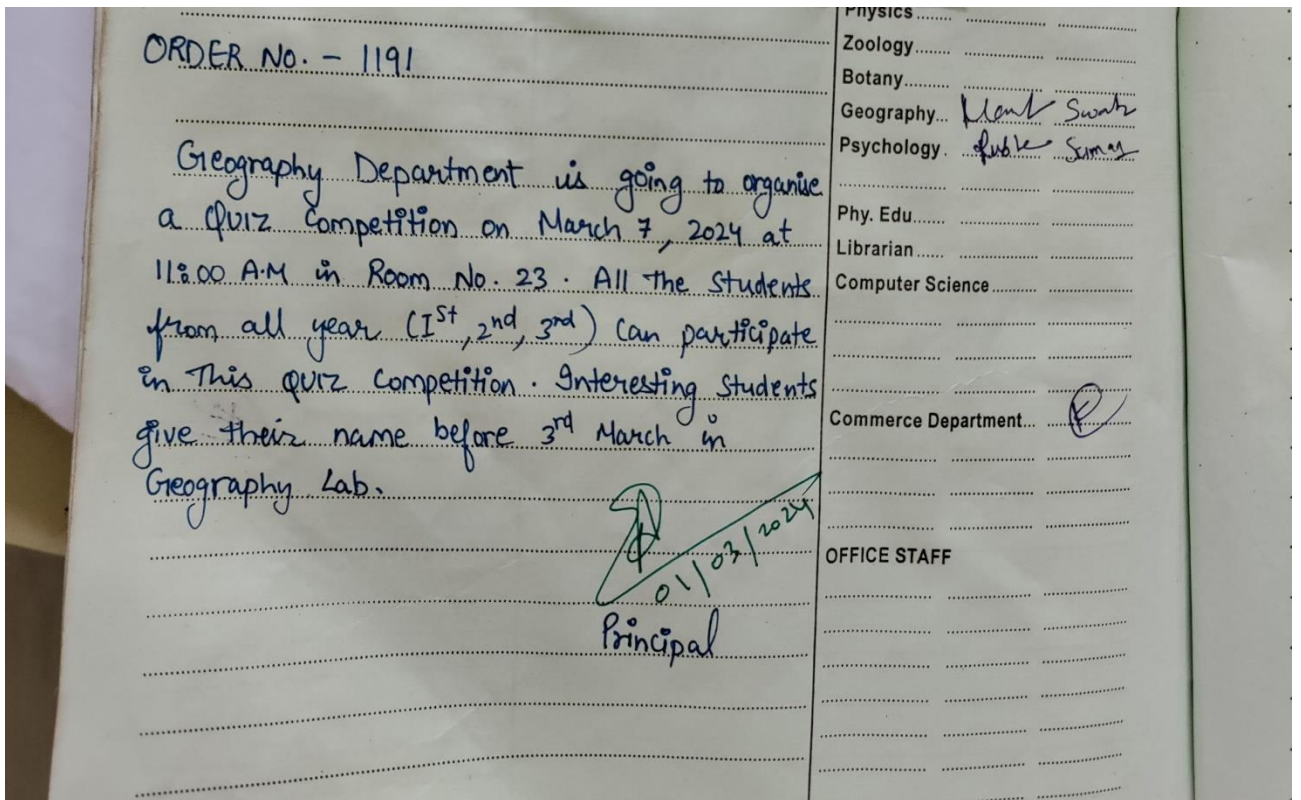 ORDER No. - 1191
Geography Department is going to organise
a Quiz Competition on March 7, 2024 at
11:00 A.M in Room No. 23. All the Students
from all year (Ist, 2nd, 3rd) Can participate
in This Quiz Competition. Interesting Students
give their name before 3rd March in
Geography Lab.
01/03/2024
Principal
Physics
Zoology
Botany
Geography
Psychology
Phy. Edu
Librarian
Computer Science
Commerce Department
OFFICE STAFF